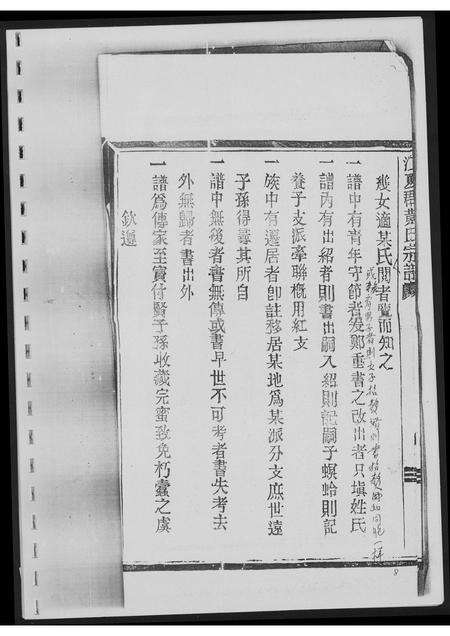 江夏郡黃氏宗譜
幾女適某氏閱者覽而知之
一譜中有青年守節者必鄭重書之改出者只填姓氏
一譜內有出紹者則書出嗣入紹則記嗣子螟蛉則記
養子支派牽聯概用紅支
一族中有遷居者卽註移居某地為某派分支庶世遠
子孫得尋其所自
一譜中無後者書無傳或書早世不可考者書失考去
外無歸者書出外
一譜為傳家至寶付賢子孫收藏完蜜致免朽蠹之虞
欽遵
8